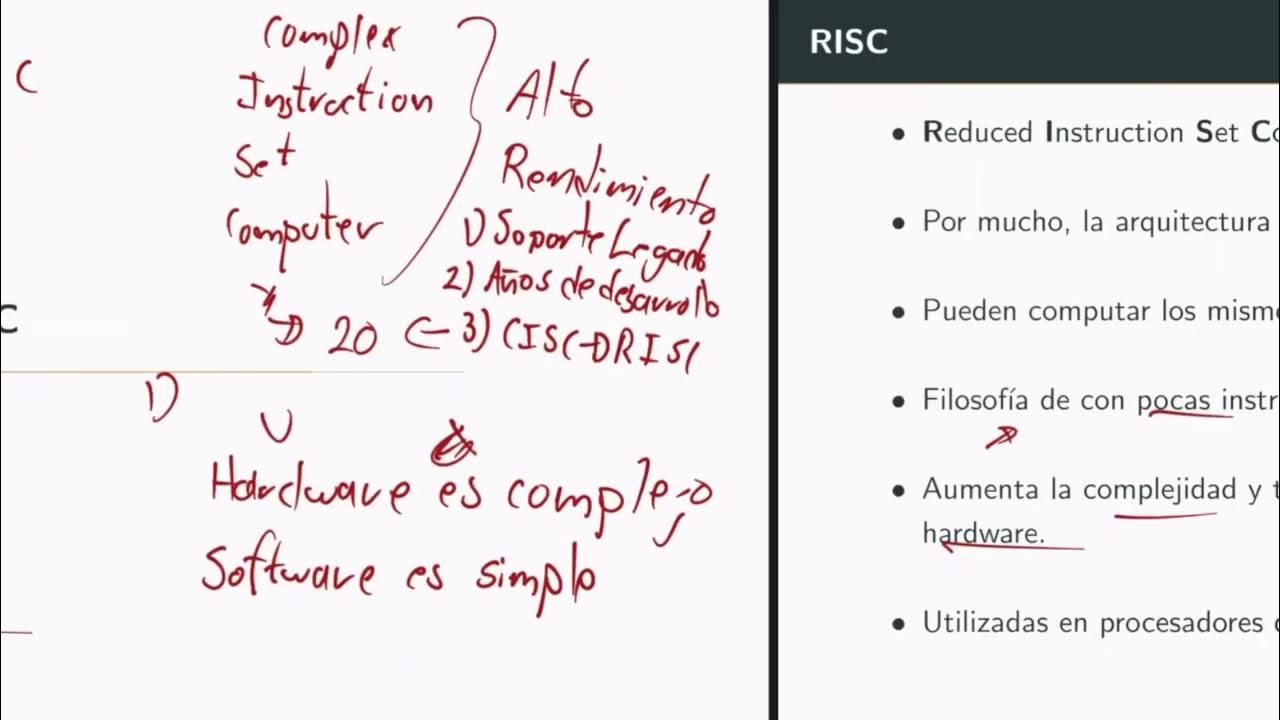 C
Complex
Instruction
Set
Computer
Alto
Rendimiento
1) Soporte Legado
2) Años de desarrollo
20 ← 3) CISC→RISC
C
Hardware es complejo
Software es simple
RISC
• Reduced Instruction Set Co
• Por mucho, la arquitectura
• Pueden computar los mismo
• Filosofía de con pocas instr
• Aumenta la complejidad y t
hardware.
• Utilizadas en procesadores